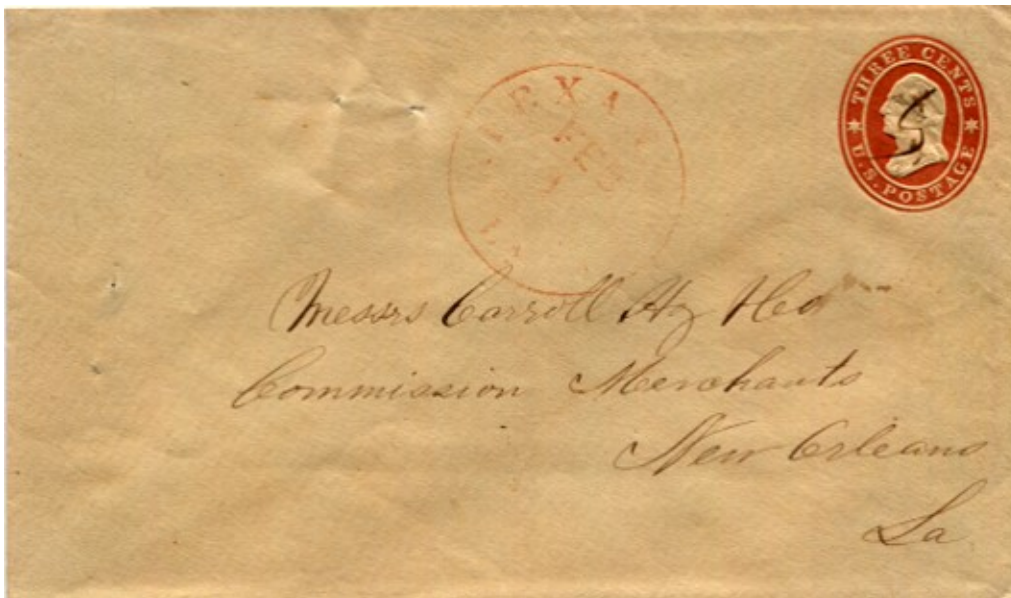 THREE CENTS
U.S. POSTAGE
FEB
LA
Messrs Carroll
Commission Merchants
New Orleans
La